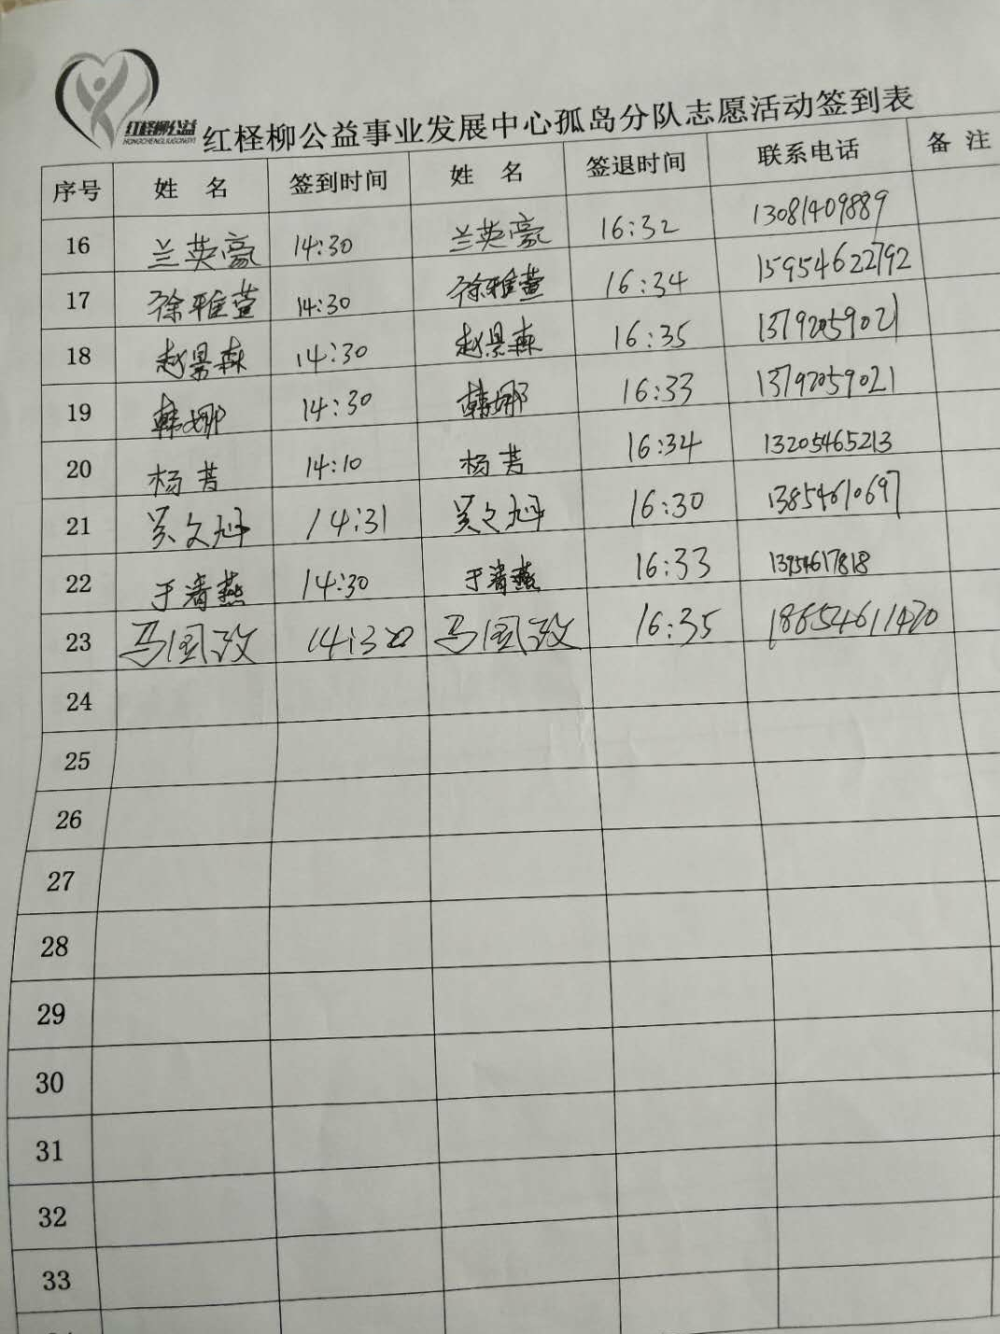 红柽柳公益
HONGCHENGLIUGONGYI
红柽柳公益事业发展中心孤岛分队志愿活动签到表
序号 姓 名 签到时间 姓 名 签退时间 联系电话 备 注
16 兰英豪 14:30 兰英豪 16:32 13081409889
17 徐雅萱 14:30 徐雅萱 16:34 15954622792
18 赵景森 14:30 赵景森 16:35 13792059021
19 韩娜 14:30 韩娜 16:33 13792059021
20 杨芳 14:10 杨芳 16:34 13205465213
21 吴文 14:31 吴文 16:30 13854610697
22 于 燕 14:30 于 燕 16:33 13954617818
23 马国政 14:30 马国政 16:35 18654611420
24
25
26
27
28
29
30
31
32
33